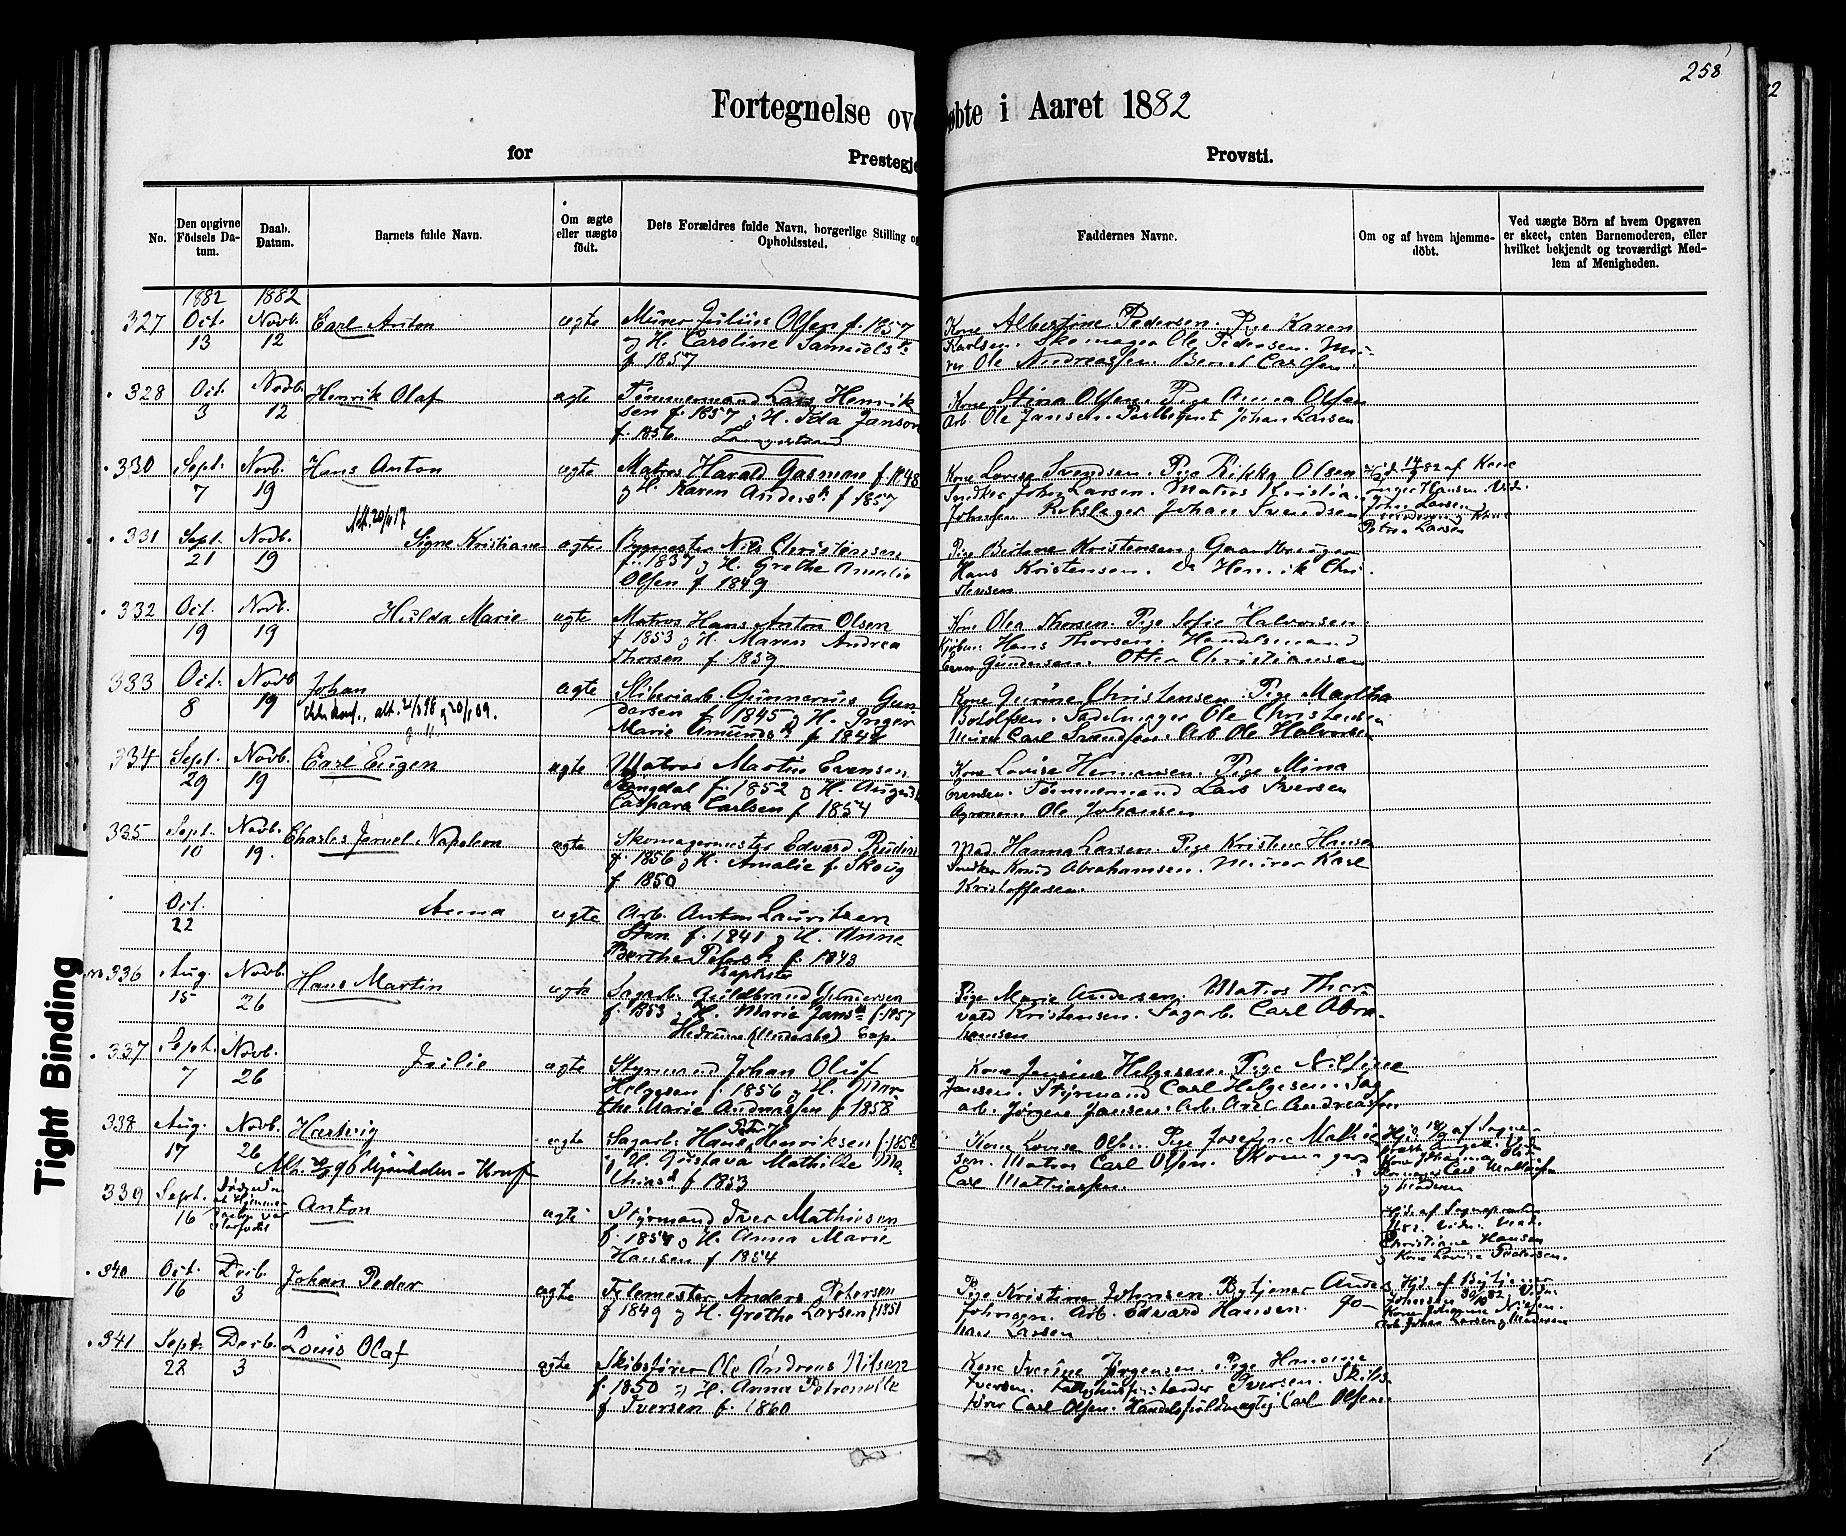 258
Fortegnelse ove
øbte i Aaret 1882
for
Prestegje
Provsti.
No.
Den opgivne Födsels Da-tum.
Daab. Datum.
Barnets fulde Navn.
Om ægte eller uægte födt.
Dets Forældres fulde Navn, borgerlige Stilling og Opholdssted.
Faddernes Navne.
Om og af hvem hjemme-döbt.
Ved uægte Börn af hvem Opgaven er skeet, enten Barnemoderen, eller hvilket bekjendt og troværdigt Med-lem af Menigheden.
1882 1882
327 Oct. 13 Novb. 12 Carl Anton ægte Murer Julius Olsen f. 1857
og H. Caroline Samuels
f 1857
Kone Albertine Pedersen. Pige Karen
Karlsen. Skomager Ole Pedersen. Mu-
rer Ole Andreassen. Bernt Carlsen.
328 Oct. 3 Novb. 12 Henrik Olaf ægte Tømmermand Lars Henrik
sen f. 1857 og H. Ida Janson
f. 1856. Langestrand
Kone Stina Olsen. Pige Anna Olsen
Arb. Ole Jansen. Postbetjent Johan Larsen.
330 Sept. 7 Novb. 19 Hans Anton ægte Matros Harald Gasman f 1848
og H. Karen Anders f 1857
Kone Lovise Svendsen. Pige Rikka Olsen
Snedker John Larsen. Matros Kristia
Johnsen Rebslager Johan Svendsen
Hjd. 14/9 82 af Kone
Inger Hansen Vid.
John Larsen
Petra Larsen
Att. 20/11 17
331 Sept. 21 Novb. 19 Signe Kristiane ægte Bygmester Nils Christensen
f. 1837 og H. Grethe Amalie
Olsen f 1849
Pige Birthine Kristensen. Gaardbruger
Hans Kristensen. Henrik Chri
stensen
332 Oct. 19 Novb. 19 Hulda Marie ægte Matros Hans Anton Olsen
f 1853 og H. Maren Andrea
Thorsen f. 1859
Kone Olea Thorsen. Pige Sofie Halvorsen.
Kjøbm. Hans Thorsen. Handelsmand
Even Gundersen. Otter Christiansen
333 Oct. 8 Novb 19 Johan ægte Sliberiarb. Gunnerius Gun
dersen f 1845 og H. Inger
Marie Amunds f. 1848
Kone Gurine Christensen. Pige Martha
Botolfsen. Sadelmager Ole Christensen
Murer Carl Svendsen. Arb Ole Halvorsen
334 Sept. 29 Novb. 19 Carl Eugen ægte Matros Martin Evensen
Langdal f. 1852 og H. Augusta
Caspara Carlsen f 1854
Kone Lovise Hermansen. Pige Mina
Evensen. Tömmermand Lars Iversen
Agronom Ole Johansen
335 Sept. 10 Novb. 19. Charles Jervel Napoleon ægte Skomagermester Edvard Rudin
f. 1856 og H. Amalie f. Skoug
f 1850
Mad. Hanna Larsen. Pige Kristine Hansen
Snedker Knud Abrahamsen. Murer Karl
Kristoffersen.
Oct. 22 Anna ægte Arb. Anton Lauritzen
Sten f. 1841 og H. Anne
Berthe Peders f. 1843
Baptister
336 Aug. 15 Novb. 26 Hans Martin ægte Sagarb. Hildbrand Gundersen
f. 1853 og H. Marie Jans f. 1857
Hedrum
Pige Marie Andersen Matros Thor
vald Kristensen. Sagarb. Carl Abra-
hamsen
337 Sept. 7 Novb. 26 Julie ægte Styrmand Johan Oluf
Helgesen f. 1856 og H. Mar
the Marie Andreassen f 1858
Kone Jensine Helgesen. Pige Nilsine
Jansen. Styrmand Carl Helgesen. Sag
arb. Jörgen Jansen. Arb. Axel Andreassen
338 Aug. 17 Novb. 26 Hartvig ægte Sagarb. Hans Peter Henriksen f. 1858
og H. Gustava Mathilde Ma
thias f 1853
Kone Lovise Olsen. Pige Josefine Mathia
sen. Matros Carl Olsen. Skomager
Carl Mathiassen.
339 Sept. 16 Anton ægte Styrmand Iver Mathisen
f. 1854 og H. Anna Marie
Hansen f 1854
Hjd. af Sognepræsten
Vidn. Mad.
Christiane Hansen
og Kone Lovise Pedersen.
340 Oct. 16 Decb. 3 Johan Peder ægte Filemester Anders Petersen
f 1849 og H. Grethe Larsen f 1851
Pige Kristine Johnsen Bytjener Anders
Johnsen. Arb. Edvard Hansen. Jo-
han Larsen
Hjd. af Bytjener
Johnsen 30/10 82. Vidn.
Kone Josefine Nielsen.
Arb. Johan Larsen og Moderen
341 Sept. 28 Decb. 3 Louis Olaf ægte Skibsfører Ole Andreas Nilsen
f. 1850 og H. Anna Petronelle
f Iversen f. 1860
Kone Iverine Jørgensen. Pige
Iversen. Fattighusforstander Iversen. Skibs
fører Carl Olsen. Handelsfuldmægtig Carl Olsen.
Tight Binding